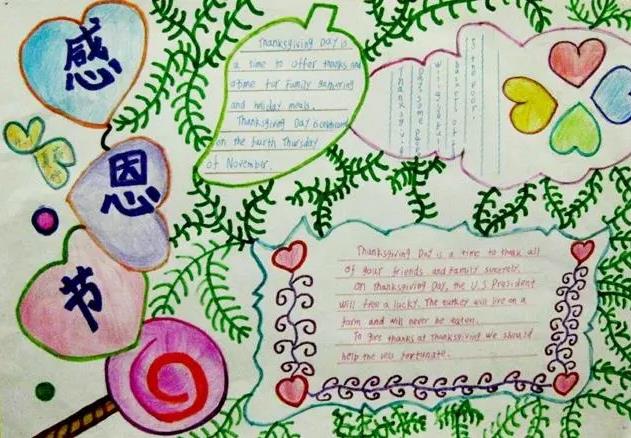 感
恩
节
Thanksgiving Day is
a time to offer thanks and
a time for family gathering
and holiday meals.
Thanksgiving Day
on the fourth Thursday
of November.
the poor
baskets of
Thanksgiving Day is a time to thank all
of your friends and family sincerely.
On Thanksgiving Day, the U.S President
will free a lucky. The turkey will live on a
farm and will never be eaten.
To give thanks at Thanksgiving we should
help the less fortunate.